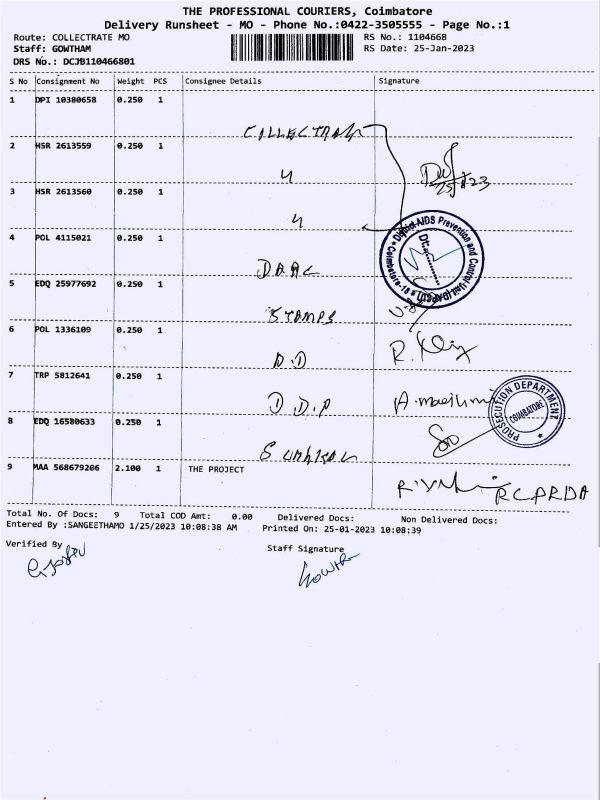 THE PROFESSIONAL COURIERS, Coimbatore
Delivery Runsheet - MO - Phone No.:0422-3505555 - Page No.:1
Route: COLLECTRATE MO RS No.: 1104668
Staff: GOWTHAM RS Date: 25-Jan-2023
DRS No.: DCJB110466801
S No Consignment No Weight PCS Consignee Details Signature
1 DPI 10380658 0.250 1
COLLECTRATE
2 HSR 2613559 0.250 1
3 HSR 2613560 0.250 1
District AIDS Prevention and Control Unit (DAPCU) Coimbatore-18
4 POL 4115021 0.250 1
5 EDQ 25977692 0.250 1
STAMPS
6 POL 1336109 0.250 1
D.D
7 TRP 5812641 0.250 1
D.D.P
PROSECUTION DEPARTMENT COIMBATORE
8 EDQ 16580633 0.250 1
9 MAA 568679206 2.100 1 THE PROJECT
Total No. Of Docs: 9 Total COD Amt: 0.00 Delivered Docs: Non Delivered Docs:
Entered By :SANGEETHAMO 1/25/2023 10:08:38 AM Printed On: 25-01-2023 10:08:39
Verified By Staff Signature